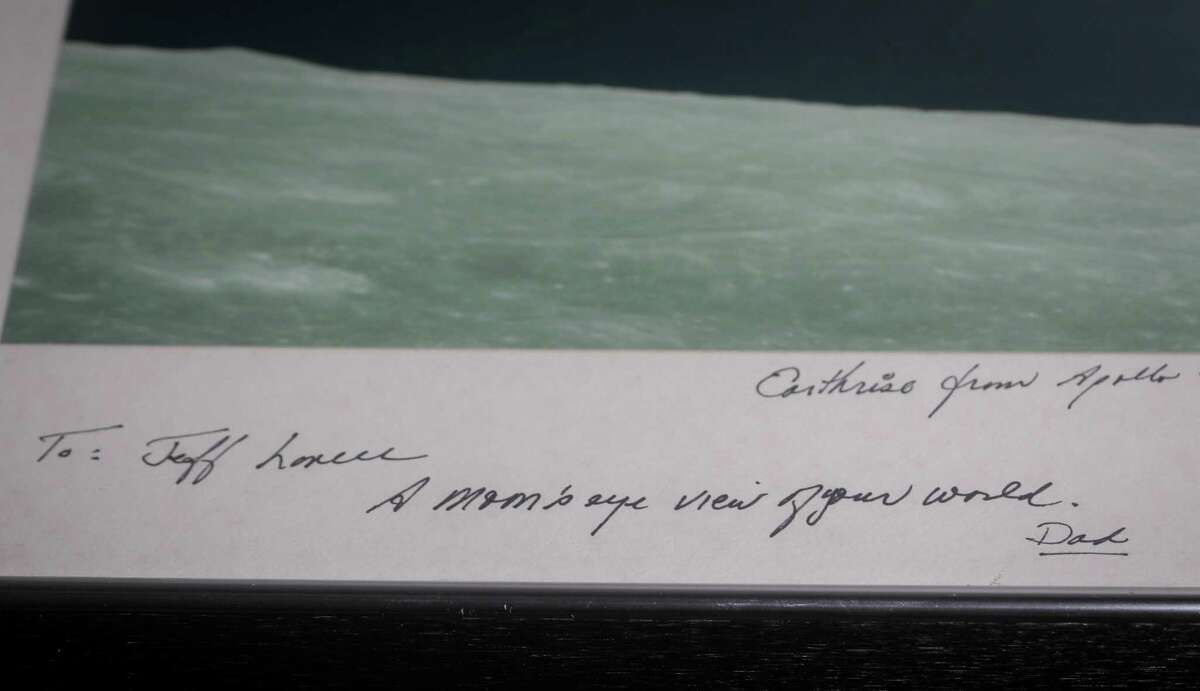 Earthrise from Apollo
To: Jeff Lovell
A moon's eye view of your world.
Dad